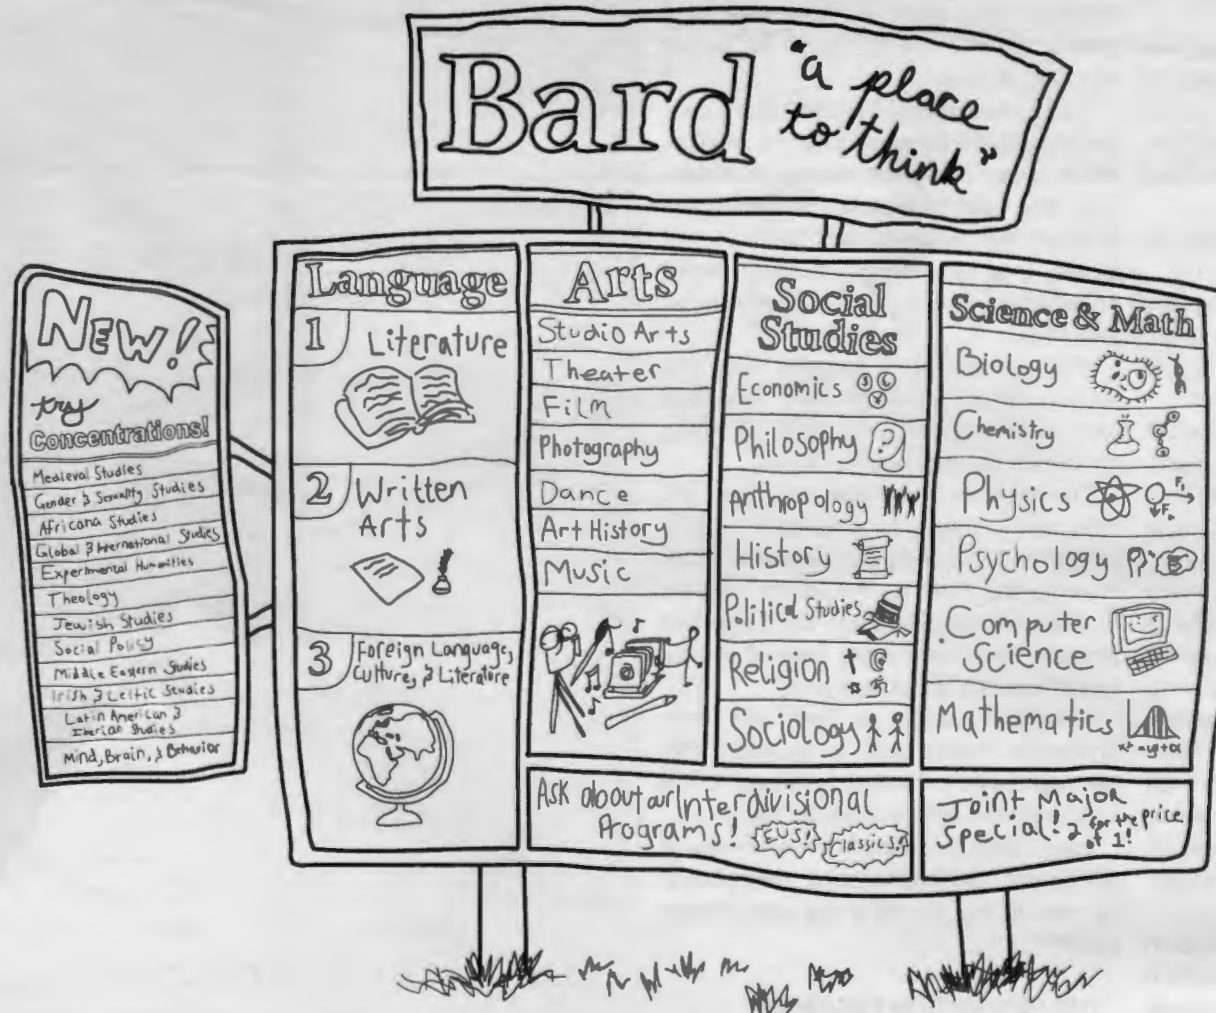 Bard
"a place
to think"
NEW!
try
Concentrations!
Medieval Studies
Gender & Sexuality Studies
Africana Studies
Global & International Studies
Experimental Humanities
Theology
Jewish Studies
Social Policy
Middle Eastern Studies
Irish & Celtic Studies
Latin American &
Iberian Studies
Mind, Brain, & Behavior
Language
1 Literature
2 Written
Arts
3 Foreign Language,
Culture, & Literature
Arts
Studio Arts
Theater
Film
Photography
Dance
Art History
Music
Social
Studies
Economics
Philosophy
Anthropology
History
Political Studies
Religion
Sociology
Science & Math
Biology
Chemistry
Physics
F₁
Psychology
Computer
Science
Mathematics
Ask about our Interdivisional
Programs!
EUS!
Classics!
Joint Major
Special! 2 for the price
of 1!